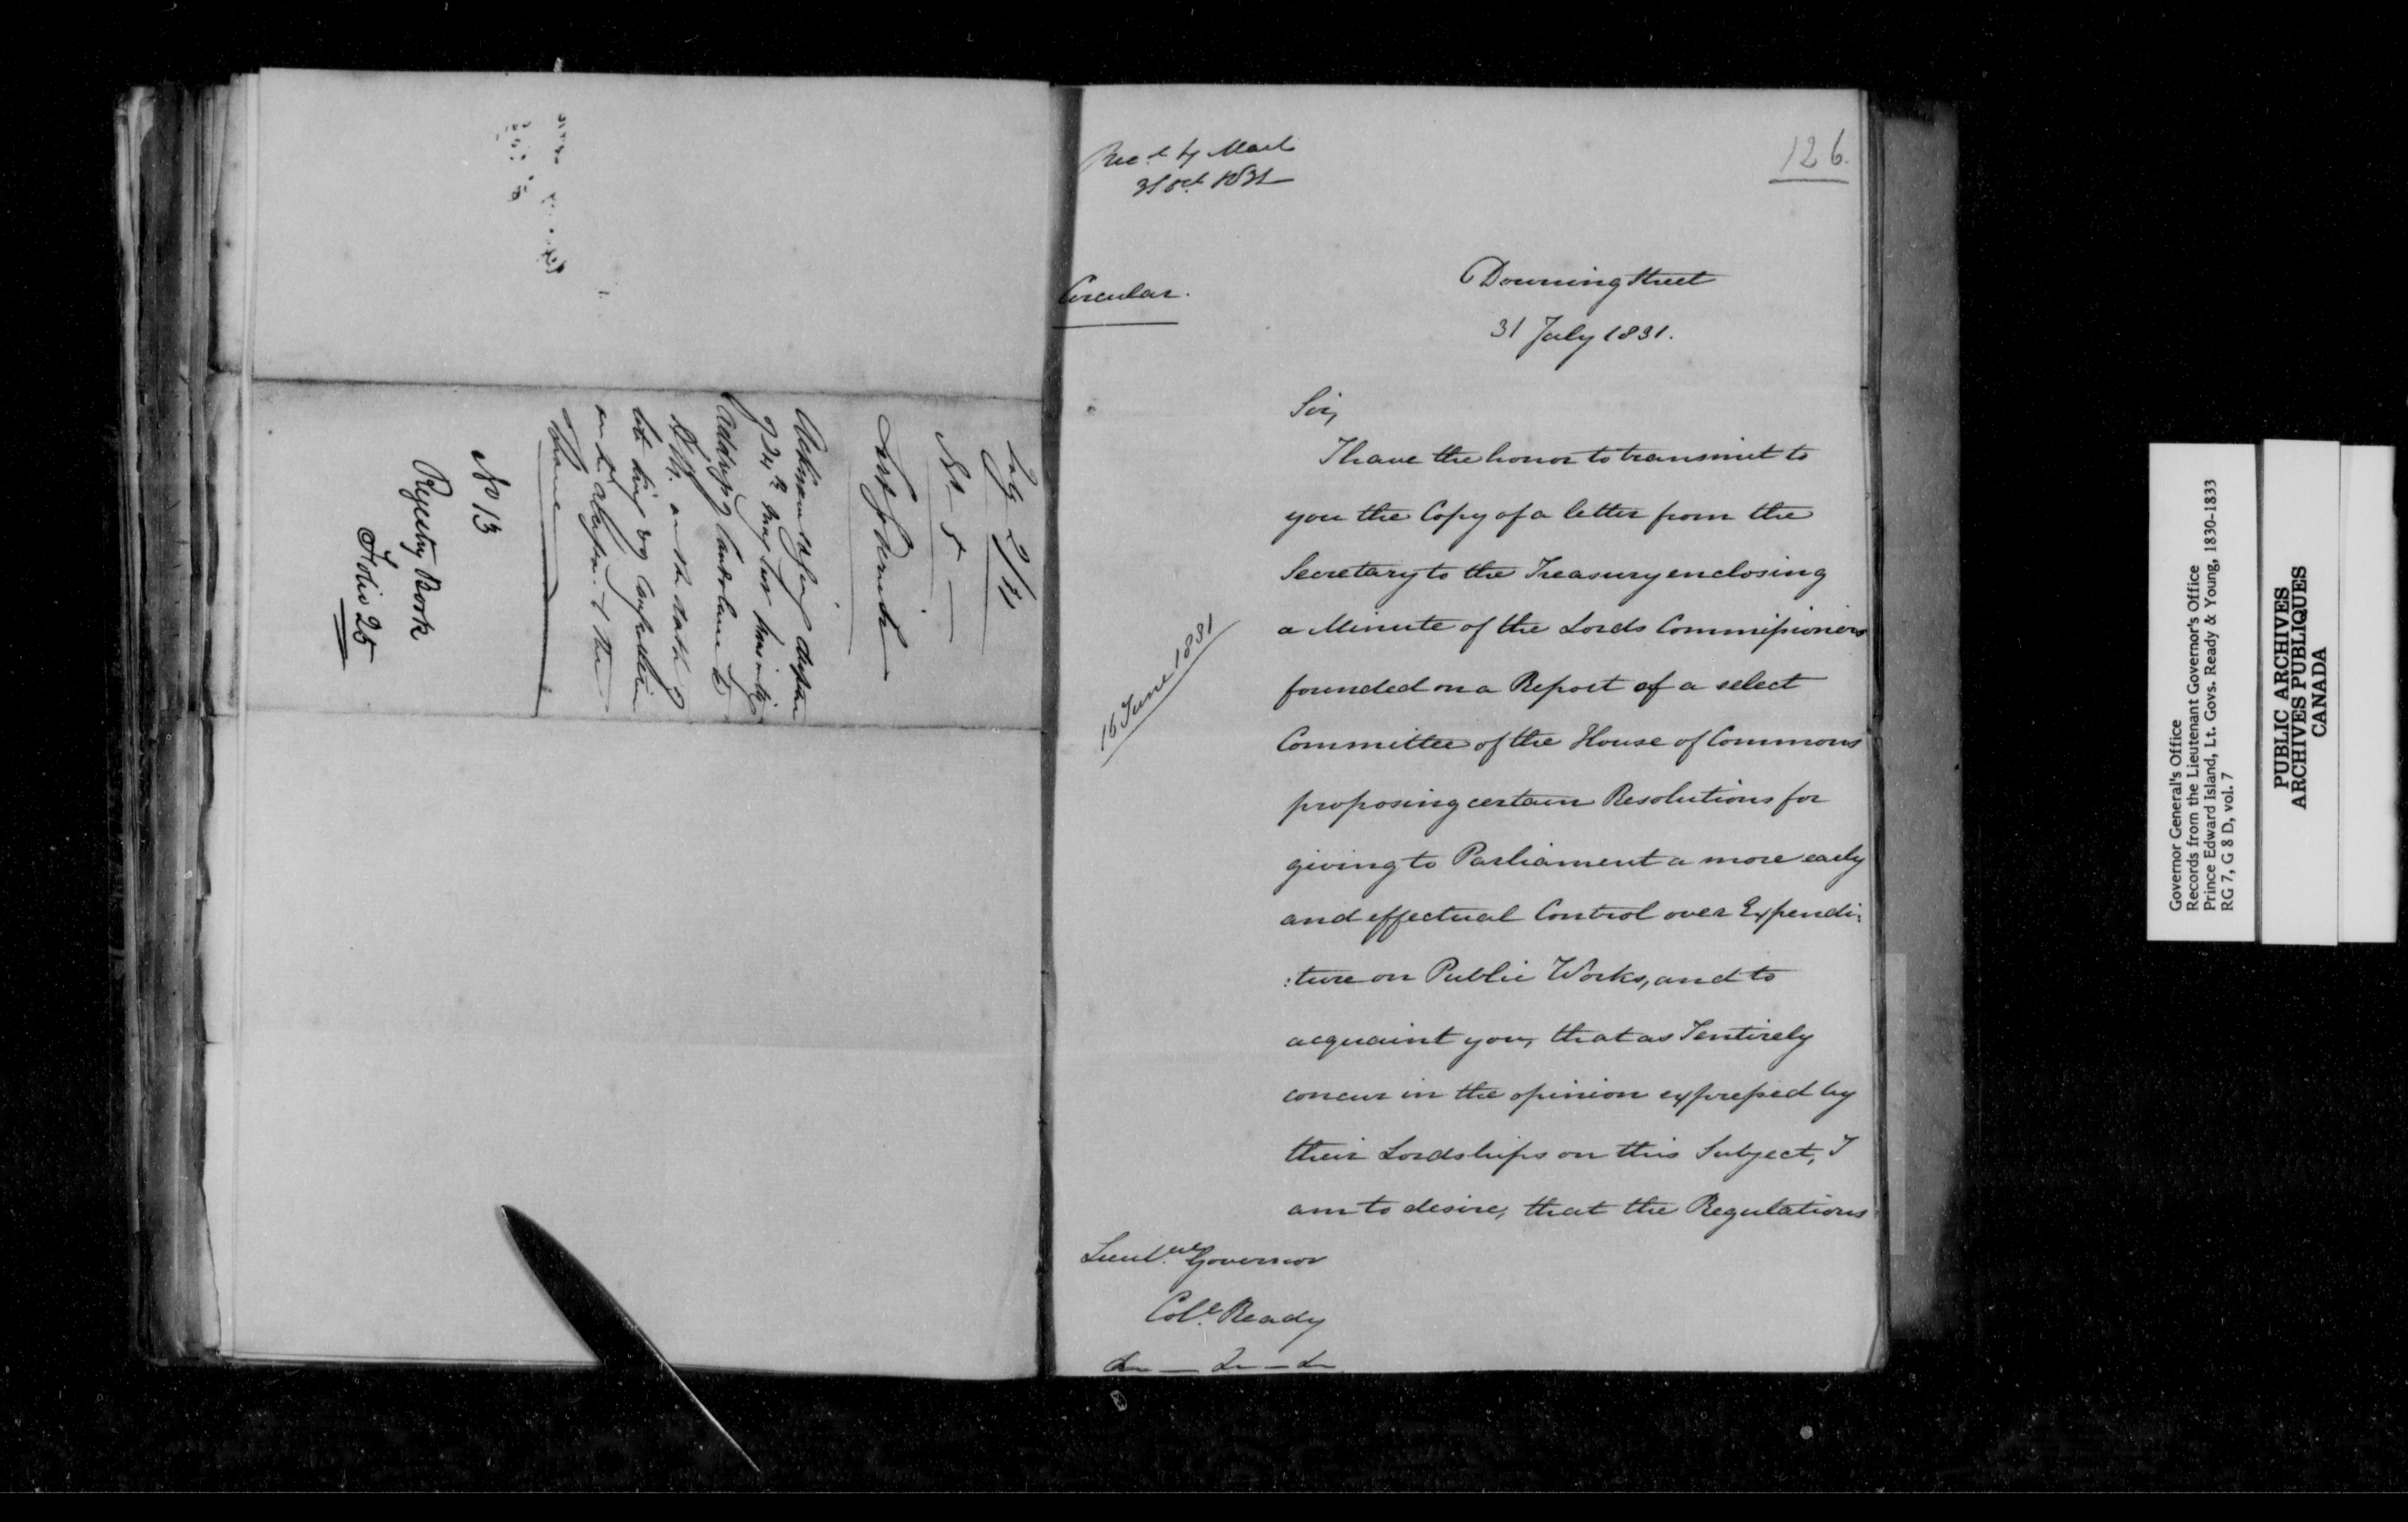 July 2/31
No 5
Lord Goderich
Acknowledging despatch
of 24th May last transmitting
Address of Condolence to
H.M. on the death of
late King & Congratulation
on his accession to the
Throne
No 13
Registry Book
Folio 25
Recd by Mail
31 Oct 1831
126.
Circular.
Downing Street
31 July 1831.
Sir,
I have the honor to transmit to
you the Copy of a letter from the
Secretary to the Treasury enclosing
a Minute of the Lords Commissioners
16 June 1831
founded on a Report of a select
Committee of the House of Commons
proposing certain Resolutions for
giving to Parliament a more early
and effectual Control over Expendi:
:ture on Public Works, and to
acquaint you, that as I entirely
concur in the opinion expressed by
their Lordships on this Subject, I
am to desire, that the Regulations
Lieut. Governor
Coll. Ready
Governor General's Office
Records from the Lieutenant Governor's Office
Prince Edward Island, Lt. Govs. Ready & Young, 1830-1833
RG 7, G 8 D, vol. 7
PUBLIC ARCHIVES
ARCHIVES PUBLIQUES
CANADA